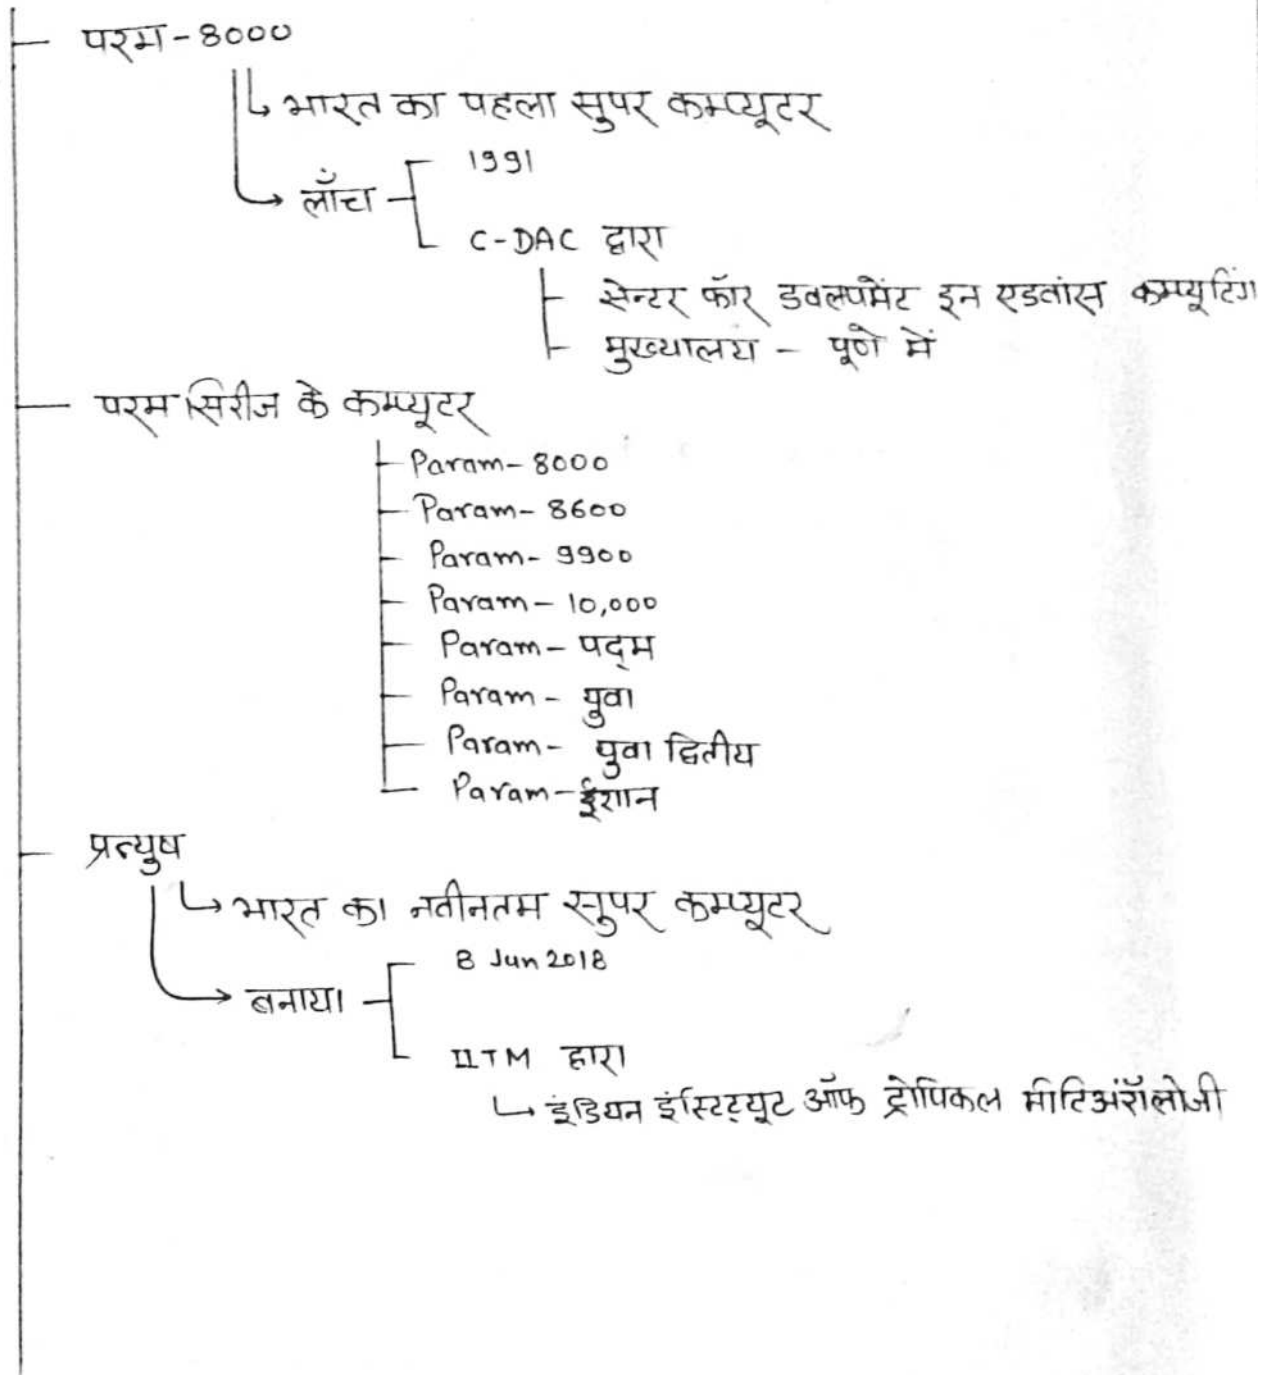 परम - 8000
भारत का पहला सुपर कम्प्यूटर
1991
लॉंच
C-DAC द्वारा
सेन्टर फॉर डवलपमेंट इन एडवांस कम्प्यूटिंग
मुख्यालय - पूणे में
परम सिरीज के कम्प्यूटर
Param- 8000
Param- 8600
Param- 9900
Param- 10,000
Param- पद्म
Param- युवा
Param- युवा द्वितीय
Param- ईशान
प्रत्युष
भारत का नवीनतम सुपर कम्प्यूटर
8 Jun 2018
बनाया
IITM द्वारा
इंडियन इंस्टिट्यूट ऑफ ट्रोपिकल मीटिअंरॉलोजी